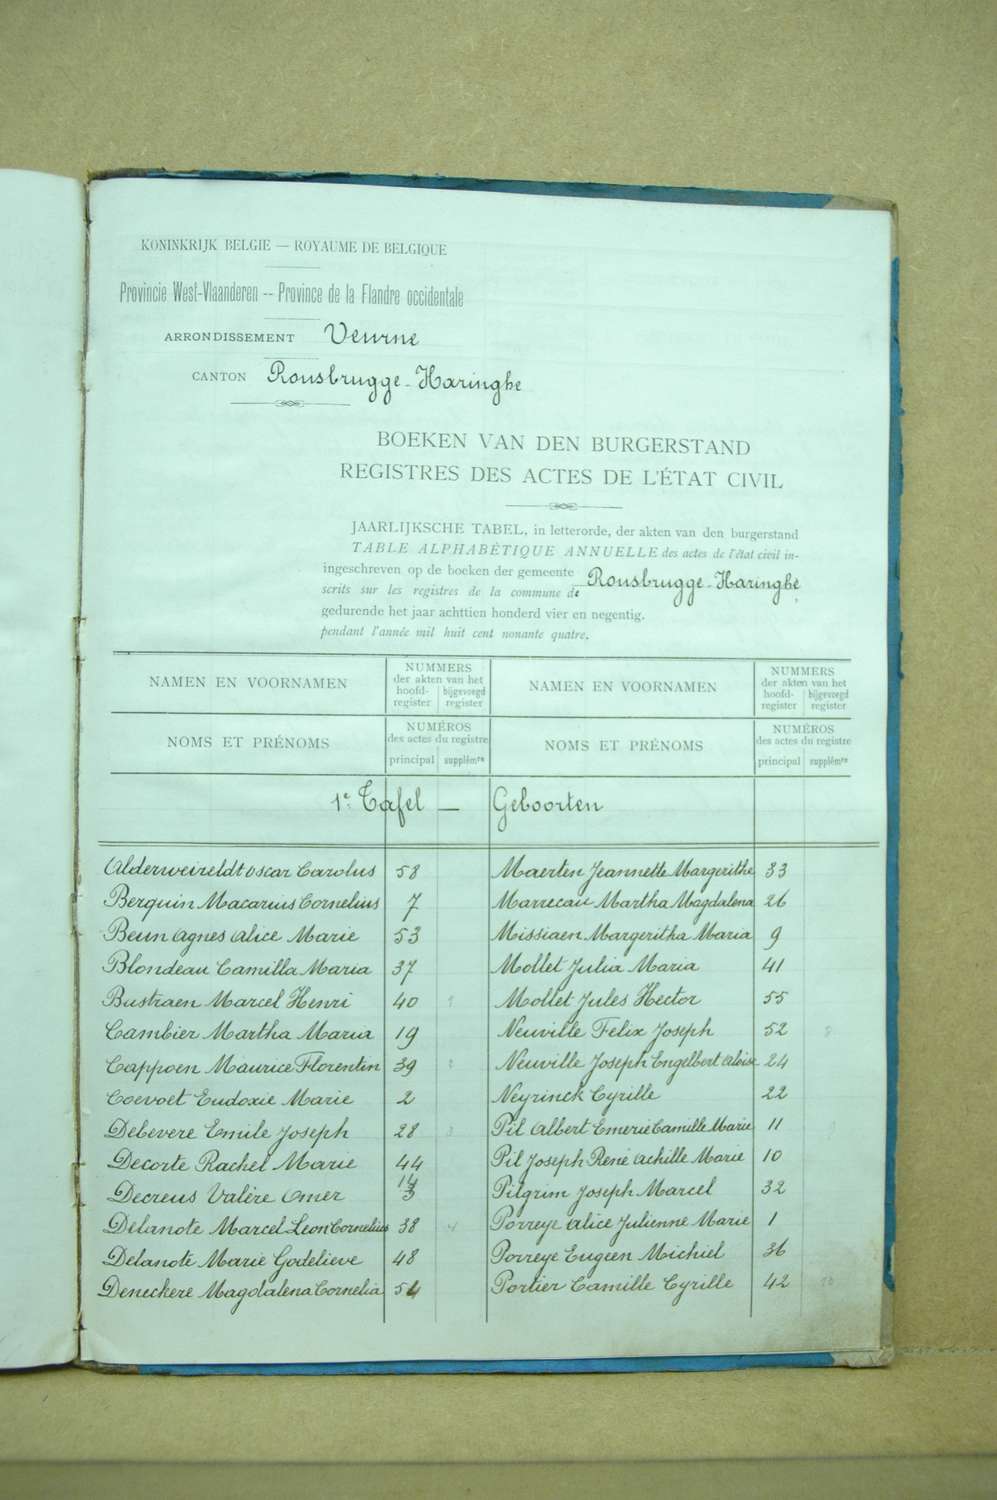 KONINKRIJK BELGIE — ROYAUME DE BELGIQUE
Provincie West-Vlaanderen -- Province de la Flandre occidentale
ARRONDISSEMENT Veurne
CANTON Rousbrugge-Haringhe
BOEKEN VAN DEN BURGERSTAND
REGISTRES DES ACTES DE L'ÉTAT CIVIL
JAARLIJKSCHE TABEL, in letterorde, der akten van den burgerstand
TABLE ALPHABÉTIQUE ANNUELLE des actes de l'état civil in-
ingeschreven op de boeken der gemeente Rousbrugge-Haringhe
scrits sur les registres de la commune de
gedurende het jaar achttien honderd vier en negentig.
pendant l'année mil huit cent nonante quatre.
NAMEN EN VOORNAMEN
NUMMERS
der akten van het
hoofd-register
bijgevoegd register
NAMEN EN VOORNAMEN
NUMMERS
der akten van het
hoofd-register
bijgevoegd register
NOMS ET PRÉNOMS
NUMÉROS
des actes du registre
principal supplémre
NOMS ET PRÉNOMS
NUMÉROS
des actes du registre
principal supplémre
1e Tafel — Geboorten
Alderweireldt Oscar Carolus 58
Berquin Macarius Cornelius 7
Beun Agnes Alice Marie 53
Blondeau Camilla Maria 37
Bustraen Marcel Henri 40
Cambier Martha Maria 19
Cappoen Maurice Florentin 39
Coevoet Eudoxie Marie 2
Debevere Emile Joseph 28
Decorte Rachel Marie 44
Decreus Valère Omer 14 3
Delanote Marcel Leon Cornelius 38
Delanote Marie Godelieve 48
Deneckere Magdalena Cornelia 54
Maerten Jeannette Margerithe 33
Marrecau Martha Magdalena 26
Missiaen Margeritha Maria 9
Mollet Julia Maria 41
Mollet Jules Hector 55
Neuville Felix Joseph 52
Neuville Joseph Engelbert Aloïse 24
Neyrinck Cyrille 22
Pil Albert Emerie Camille Marie 11
Pil Joseph René Achille Marie 10
Pilgrim Joseph Marcel 32
Porreye Alice Julienne Marie 1
Porreye Eugeen Michiel 36
Portier Camille Cyrille 42